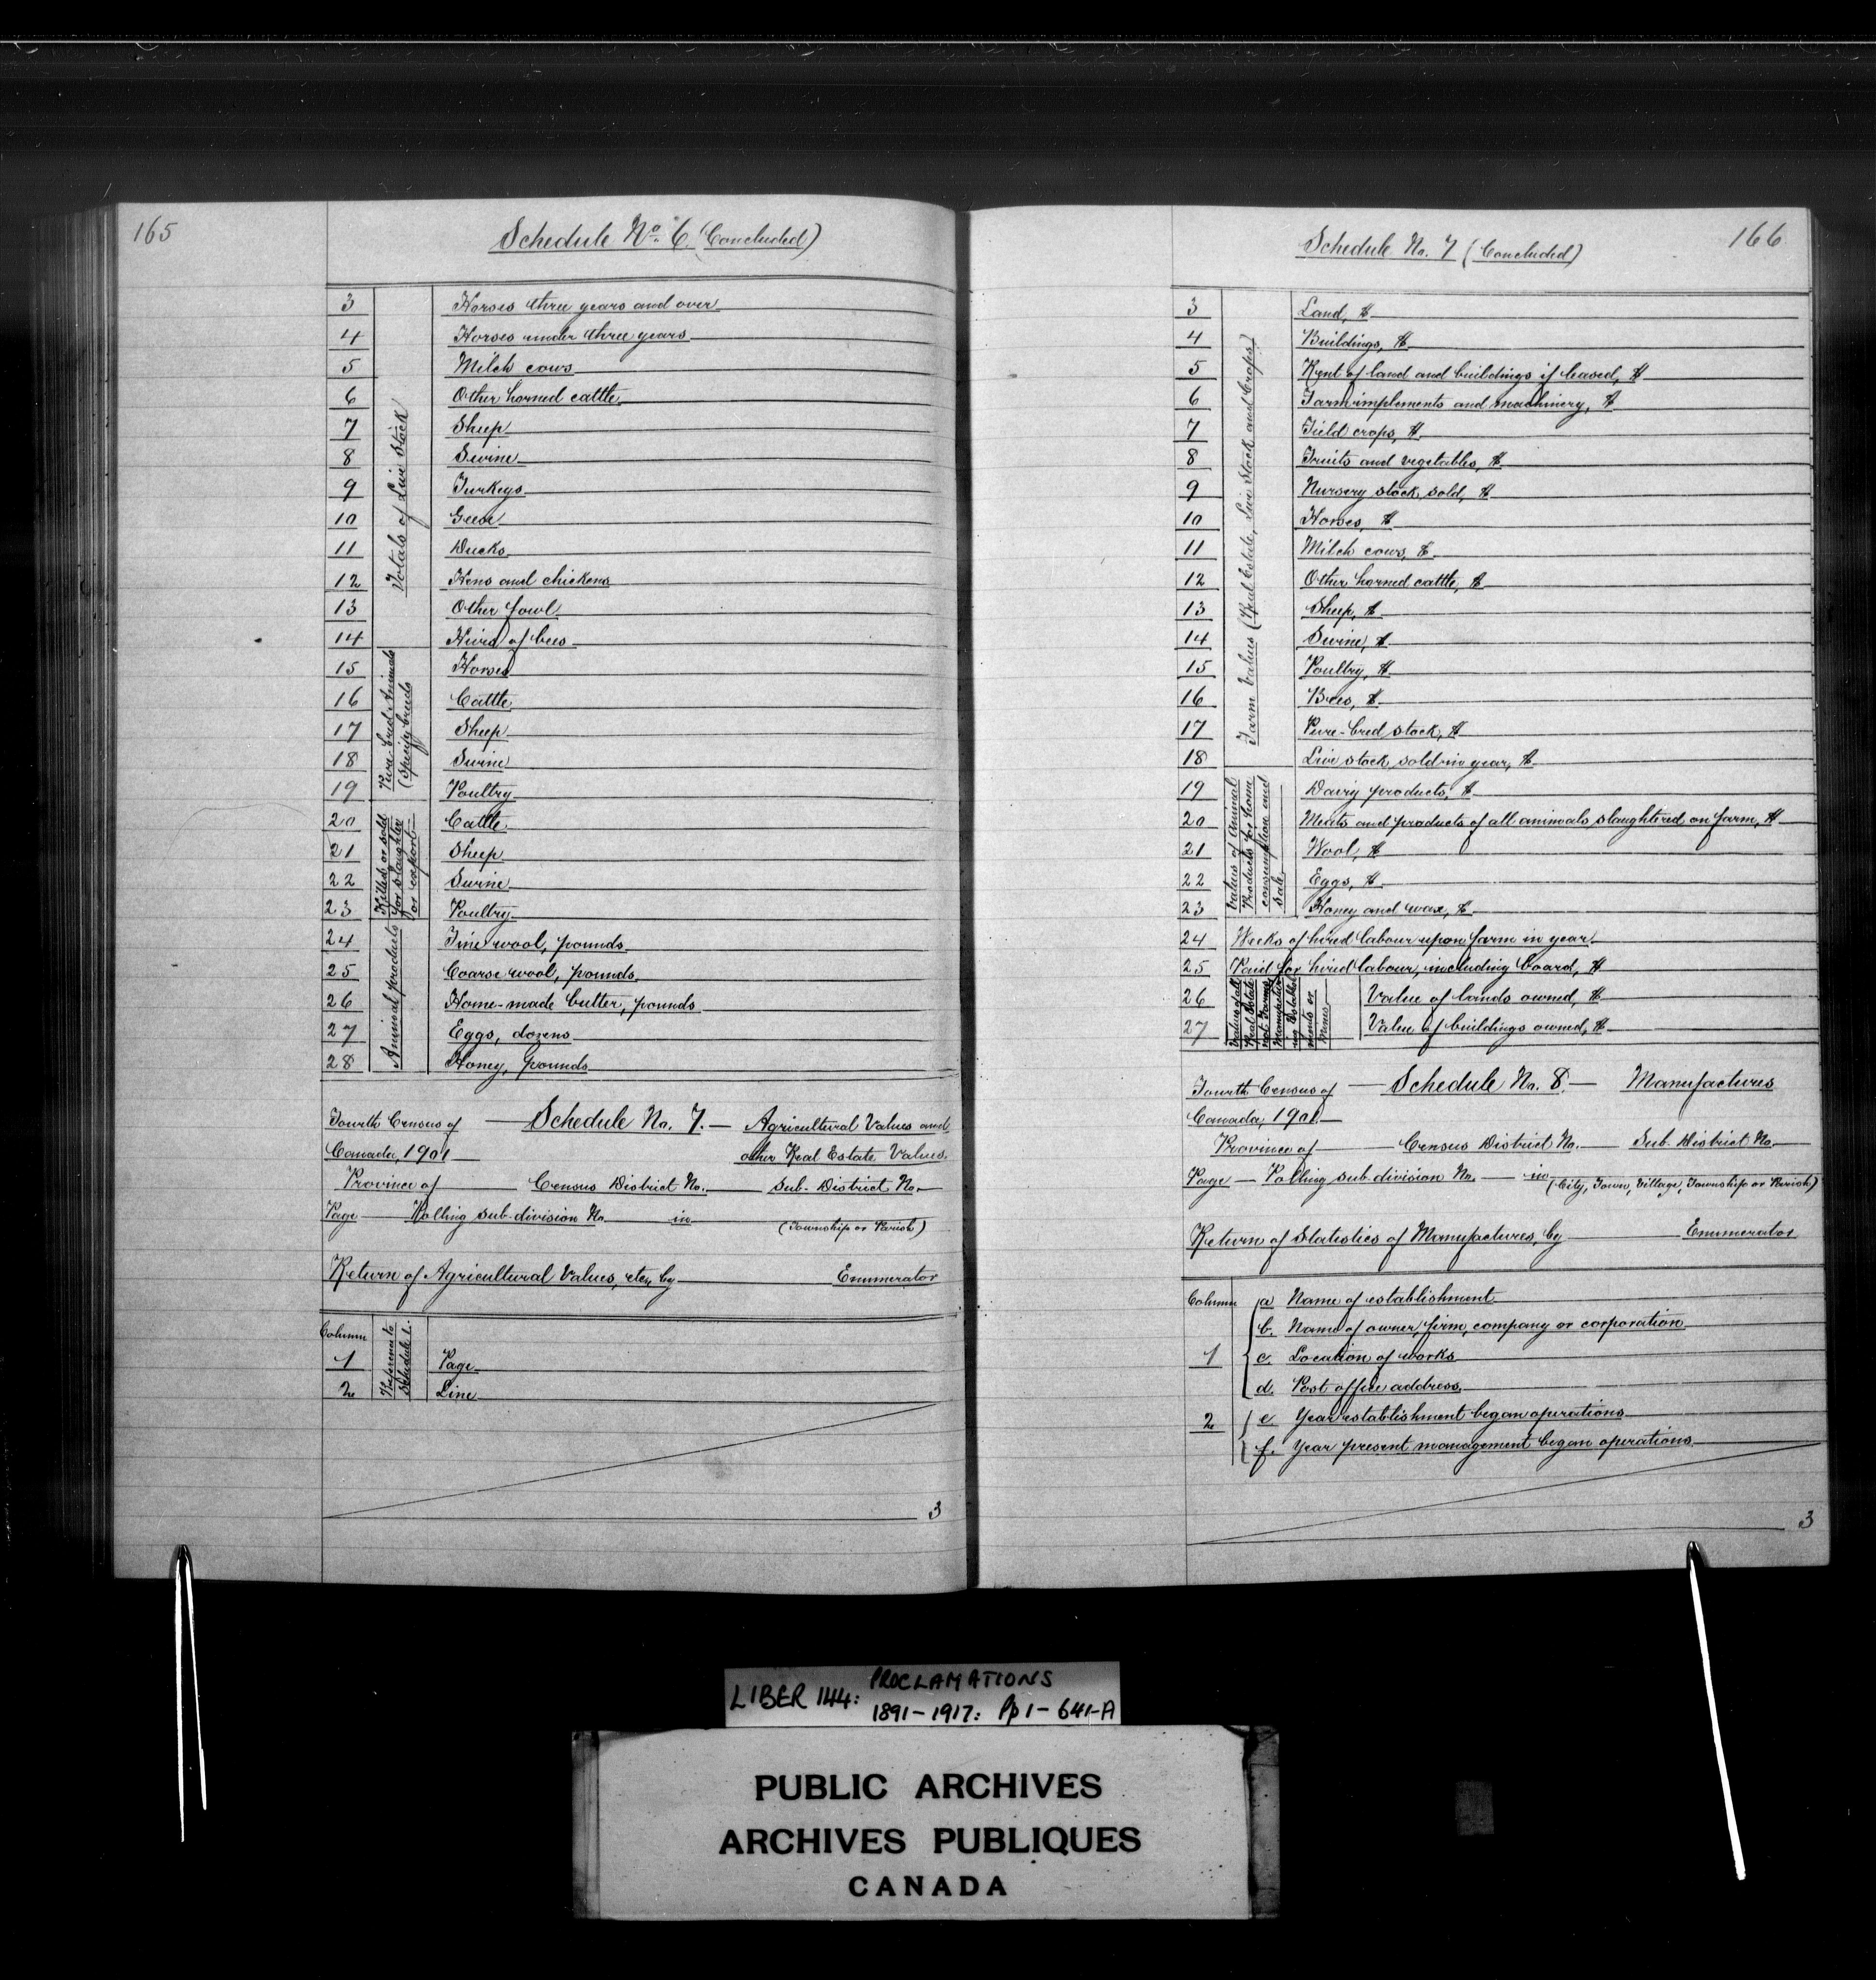 165
Schedule No. 6 (Concluded)
Totals of Live Stock
3 Horses three years and over
4 Horses under three years
5 Milch cows
6 Other horned cattle
7 Sheep
8 Swine
9 Turkeys
10 Geese
11 Ducks
12 Hens and chickens
13 Other fowl
14 Hives of bees
Pure-bred Animals
(specify breeds
15 Horses
16 Cattle
17 Sheep
18 Swine
19 Poultry
Killed or sold
for slaughter
or export
20 Cattle
21 Sheep
22 Swine
23 Poultry
Animal products
24 Fine wool, pounds
25 Coarse wool, pounds
26 Home-made butter, pounds
27 Eggs, dozens
28 Honey, pounds
Fourth Census of — Schedule No. 7. — Agricultural Values and
Canada, 1901 other Real Estate Values.
Province of Census District No. Sub-District No.
Page Polling sub-division No. in (Township or Parish)
Return of Agricultural Values, etc., by Enumerator
Column
Reference to
Schedule 1.
1 Page
2 Line
3
166
Schedule No. 7 (Concluded)
Farm Values (Real Estate, Live Stock and Crops)
3 Land, $
4 Buildings, $
5 Rent of land and buildings if leased, $
6 Farm implements and machinery, $
7 Field crops, $
8 Fruits and vegetables, $
9 Nursery stock sold, $
10 Horses, $
11 Milch cows, $
12 Other horned cattle, $
13 Sheep, $
14 Swine, $
15 Poultry, $
16 Bees, $
17 Pure-bred stock, $
18 Live stock sold in year, $
Values of Animal
Products for home
consumption and
sale
19 Dairy products, $
20 Meats and products of all animals slaughtered on farm, $
21 Wool, $
22 Eggs, $
23 Honey and wax, $
24 Weeks of hired labour upon farm in year
25 Paid for hired labour, including board, $
Values of all
Real Estate
not Farms
Manufactur-
ing Establish
ments or
Mines
26 Value of lands owned, $
27 Value of buildings owned, $
Fourth Census of — Schedule No. 8. — Manufactures
Canada, 1901
Province of Census District No. Sub-District No.
Page — Polling sub-division No. — in (City, Town, Village, Township or Parish)
Return of Statistics of Manufactures, by Enumerator
Column a Name of establishment
b. Name of owner, firm, company or corporation
1 c. Location of works
d. Post office address
2 e Year establishment began operations
f. Year present management began operations
3
LIBER 144: PROCLAMATIONS
1891-1917: Pp 1-641-A
PUBLIC ARCHIVES
ARCHIVES PUBLIQUES
CANADA